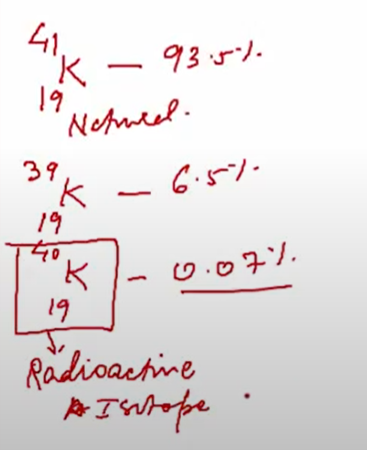 ⁴¹₁₉K — 93.5%.
Natural.
³⁹₁₉K — 6.5%.
⁴⁰₁₉K - 0.07%.
Radioactive
Isotope.